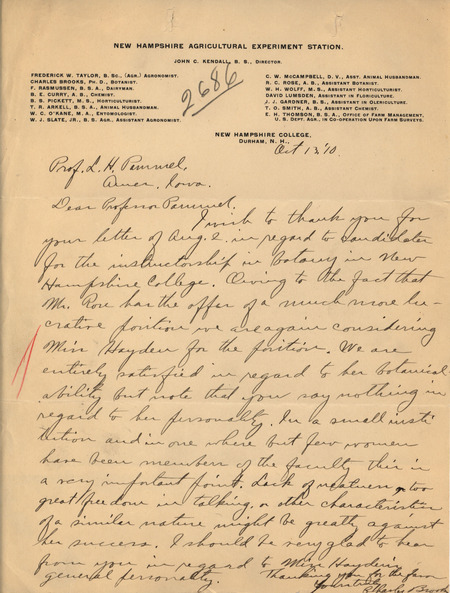 NEW HAMPSHIRE AGRICULTURAL EXPERIMENT STATION.
JOHN C. KENDALL, B. S., DIRECTOR.
FREDERICK W. TAYLOR, B. SC., (AGR.) AGRONOMIST.
CHARLES BROOKS, PH. D., BOTANIST.
F. RASMUSSEN, B. S. A., DAIRYMAN.
B. E. CURRY, A. B., CHEMIST.
B. S. PICKETT, M. S., HORTICULTURIST.
T. R. ARKELL, B. S. A., ANIMAL HUSBANDMAN.
W. C. O'KANE, M. A., ENTOMOLOGIST.
W. J. SLATE, JR., B. S. AGR., ASSISTANT AGRONOMIST.
2686
C. W. McCAMPBELL, D. V., ASST. ANIMAL HUSBANDMAN.
R. C. ROSE, A. B., ASSISTANT BOTANIST.
W. H. WOLFF, M. S., ASSISTANT HORTICULTURIST.
DAVID LUMSDEN, ASSISTANT IN FLORICULTURE.
J. J. GARDNER, B. S., ASSISTANT IN OLERICULTURE.
T. O. SMITH, A. B., ASSISTANT CHEMIST.
E. H. THOMSON, B. S. A., OFFICE OF FARM MANAGEMENT,
U. S. DEPT. AGR., IN CO-OPERATION UPON FARM SURVEYS.
NEW HAMPSHIRE COLLEGE,
DURHAM, N. H., Oct 13, '10
Prof. L. H. Pammel,
Ames, Iowa.
Dear Professor Pammel,
I wish to thank you for
your letter of Aug. 2, in regard to candidates
for the instructorship in Botany in New
Hampshire College. Owing to the fact that
Mr. Rose has the offer of a much more lu-
crative position we are again considering
Miss Hayden for the position. We are
entirely satisfied in regard to her botanical
ability but note that you say nothing in
regard to her personality. In a small insti
tution and in one where but few women
have been members of the faculty this is
a very important point. Lack of neatness, too
great freedom in talking, or other characteristics
of a similar nature might be greatly against
her success. I should be very glad to hear
from you in regard to Miss Hayden's
general personality.
Thanking you for the favor
Yours truly,
Charles Brooks